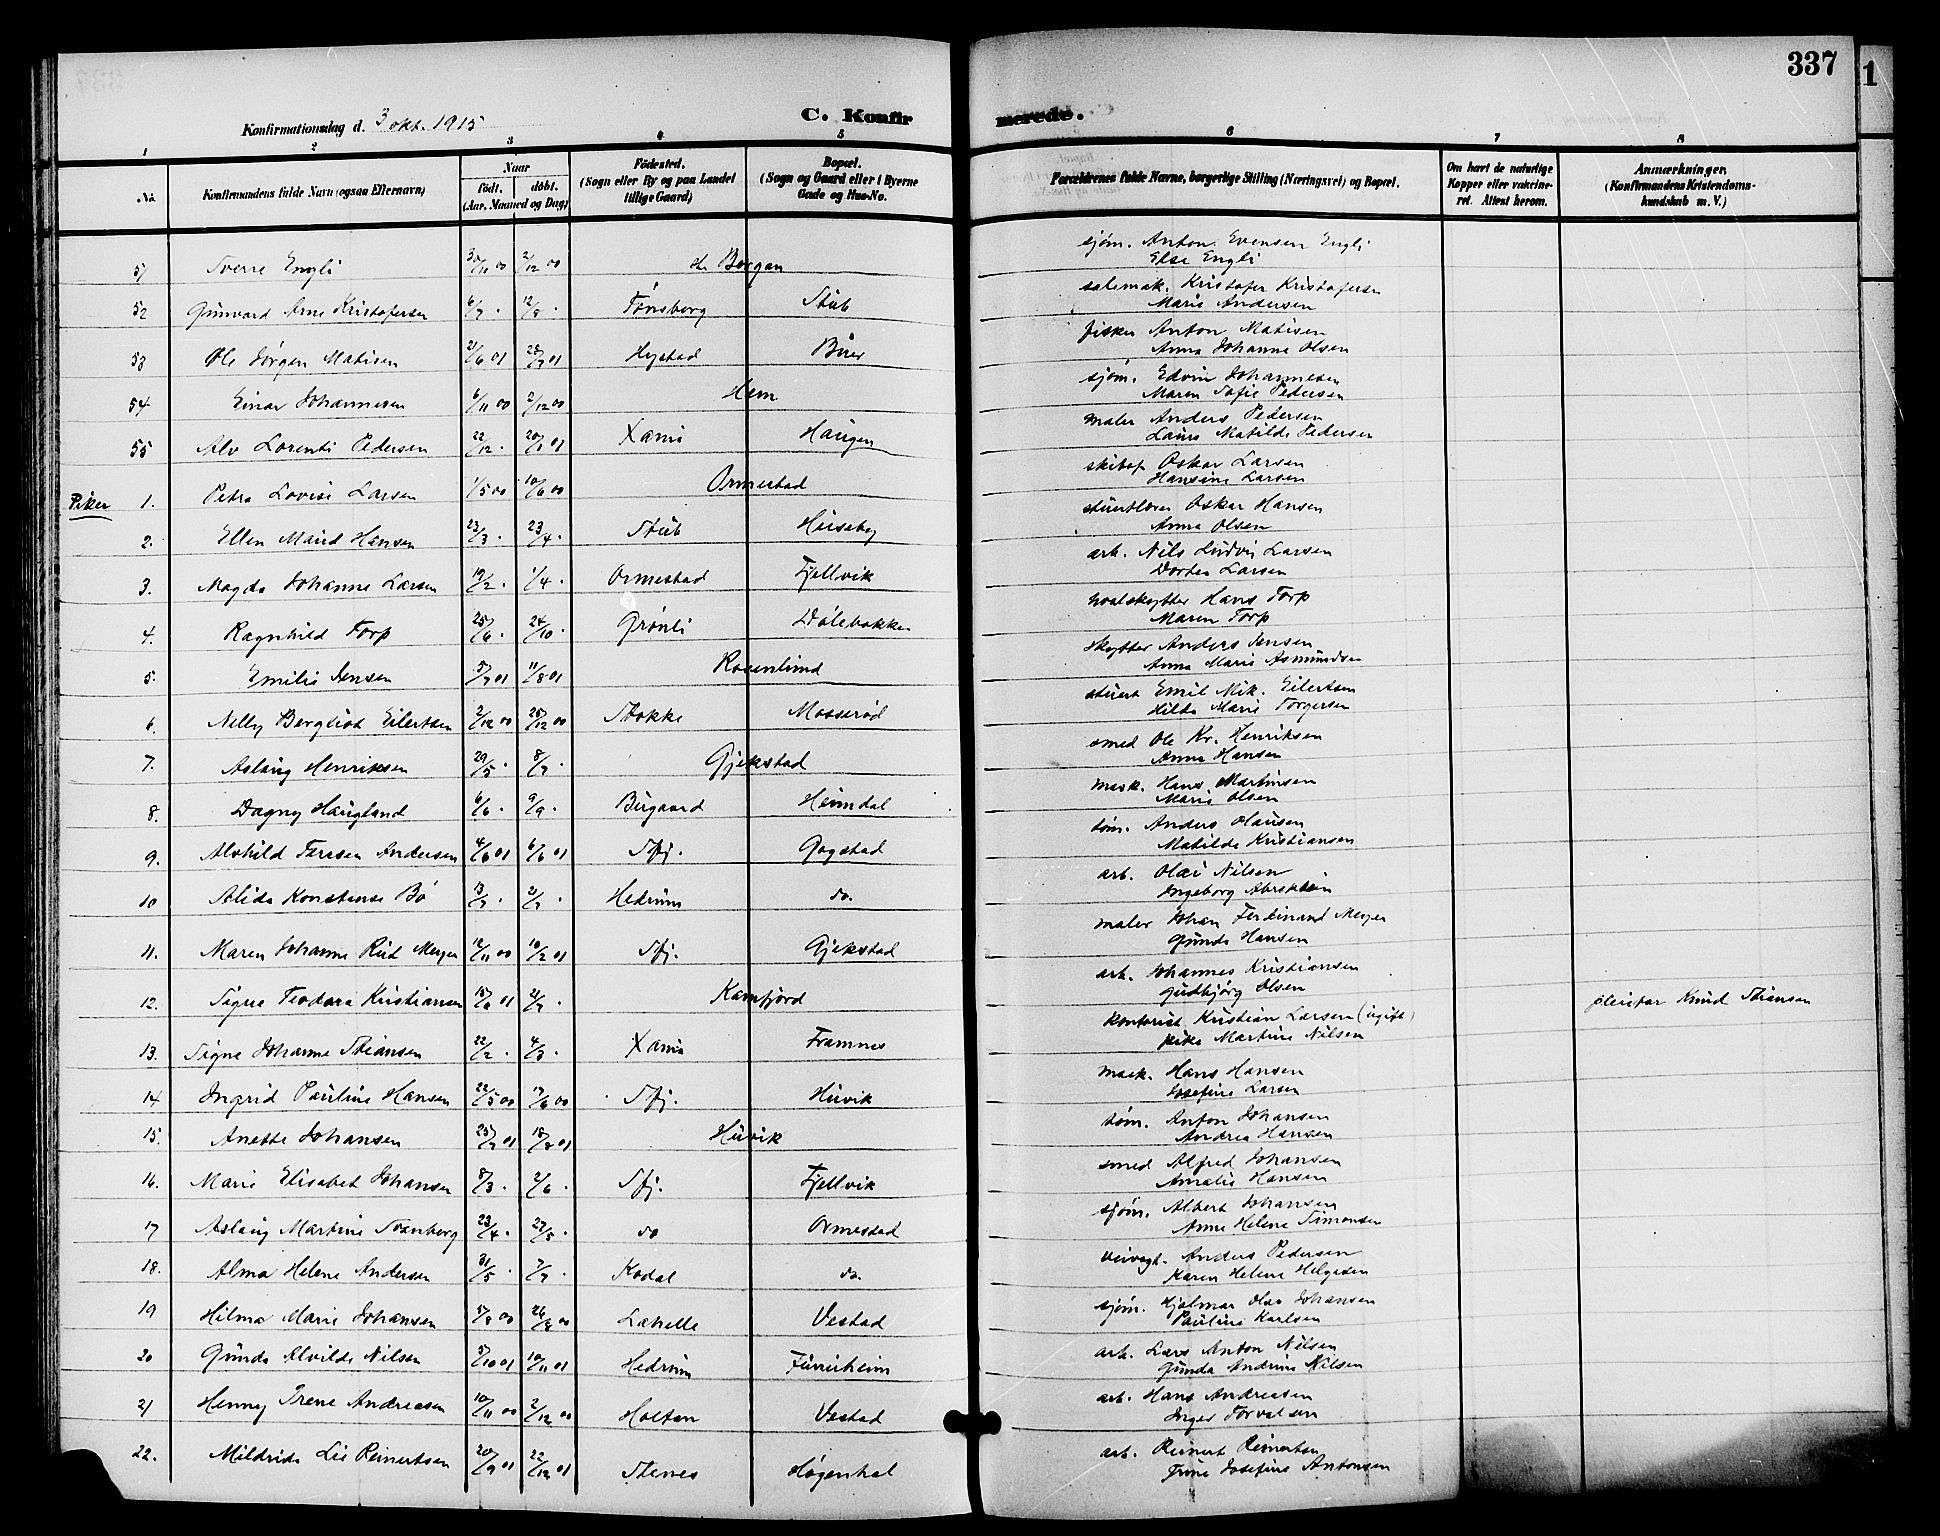 337
1
Konfirmationsdag d. 3 okt. 1915
C. Konfirmerede.
1 2 3 4 5 6 7 8
No
Konfirmandens fulde Navn (ogsaa Efternavn)
Naar
født. døbt.
(Aar, Maaned og Dag)
Fødested.
(Sogn eller By og paa Landet
tillige Gaard)
Bopæl.
(Sogn og Gaard eller i Byerne
Gade og Hus-No.
Forældrenes fulde Navne, borgerlige Stilling (Næringsvei) og Bopæl.
Om havt de naturlige
Kopper eller vakcine-
ret. Attest herom.
Anmærkninger.
(Konfirmandens Kristendoms-
kundskab m. V.)
51 Sverre Engli 30/11 00 2/12 00 Borgan sjøm. Anton Evensen Engli
Else Engli
52 Gunvard Arne Kristofersen 6/7 . 12/8 . Tønsberg Stub salemak. Kristofer Kristofersen
Marie Andersen
53 Ole Jørgen Matisen 21/6 01 28/7 01 Hystad Buer fisker Anton Matisen
Anna Johanne Olsen
54 Einar Johannesen 6/11 00 2/12 00 Hem sjøm. Edvin Johannesen
Maren Sofie Pedersen
55 Alv Lorenti Pedersen 22/12 . 20/1 01 Xania Haugen maler Anders Pedersen
Laura Matilde Pedersen
Piker 1. Petra Lovise Larsen 1/5 00 10/6 00 Ormestad skibsf Oskar Larsen
Hansine Larsen
2. Ellen Maud Hansen 23/3 . 23/4 . Stub Huseby Oskar Hansen
Anna Olsen
3. Magda Johanne Larsen 19/2 . 1/4 . Ormestad Fjellvik arb. Nils Ludvig Larsen
Dortea Larsen
4. Ragnhild Torp 25/6 . 24/10 . Grønli Dølebakken hvalskytter Hans Torp
Maren Torp
5. Emilie Jensen 5/7 01 11/8 01 Rosenlund skytter Anders Jensen
Anna Marie Asmundsen
6. Nelly Bergliot Eilertsen 2/12 00 25/12 00 Stokke Mosserød stuert Emil Mik. Eilertsen
Hilda Marie Torgersen
7. Aslaug Henriksen 29/5 . 8/7 . Gjekstad smed Ole Kr. Henriksen
Anna Hansen
8. Dagny Haugland 6/6 . 9/9 . Bugaard Heimdal mask. Hans Martinsen
Marie Olsen
9. Alvhild Teresen Andersen 4/5 01 6/6 01 Sfj. Gogstad tøm. Anders Olausen
Matilde Kristiansen
10 Alida Konstense Bø 13/2 . 21/7 . Hedrum do. arb. Olai Nilsen
Ingeborg
11. Maren Johanne Rud Meyer 12/11 00 10/2 01 Sfj. Gjekstad maler Johan Ferdinand Meyer
Gunda Hansen
12. Signe Teodora Kristiansen 15/6 01 21/7 . Kamfjord arb. Johannes Kristiansen
Gudbjørg Olsen
13. Signe Johanne Stiansen 22/2 . 4/3 . Xania Framnes kontorist Kristian Larsen (ugift)
pike Martine Nilsen
pleiefar Knud Stiansen
14 Ingrid Pauline Hansen 22/5 00 17/6 00 Sfj. Huvik mask. Hans Hansen
Josefine Larsen
15. Anette Johansen 25/7 01 18/8 01 Huvik tøm. Anton Johansen
Andrea Hansen
16. Marie Elisabet Johansen 8/3 . 2/6 . Sfj. Fjellvik smed Alfred Johansen
Amalie Hansen
17 Aslaug Martine Svanberg 23/4 . 27/5 . do Ormestad sjøm. Albert Johansen
Anne Helene Simonsen
18. Alma Helene Andersen 31/5 . 7/7 . Kodal do. veivogt. Anders Pedersen
Karen Helene Helgesen
19 Hilma Marie Johansen 5/8 00 26/8 00 Lahelle Vestad sjøm. Hjalmar Olav Johansen
Pauline Karlsen
20 Gunda Alvilde Nilsen 5/10 01 10/11 01 Hedrum Furuheim arb. Lars Anton Nilsen
Gunda Andrine Nilsen
21 Henny Irene Andreasen 10/11 00 2/12 00 Holtan Vestad arb. Hans Andreasen
Inger Torvalsen
22. Mildrida Lie Reinertsen 20/9 01 22/12 01 Stenes Høgenhal arb. Reinert Reinertsen
Trine Josefine Antonsen